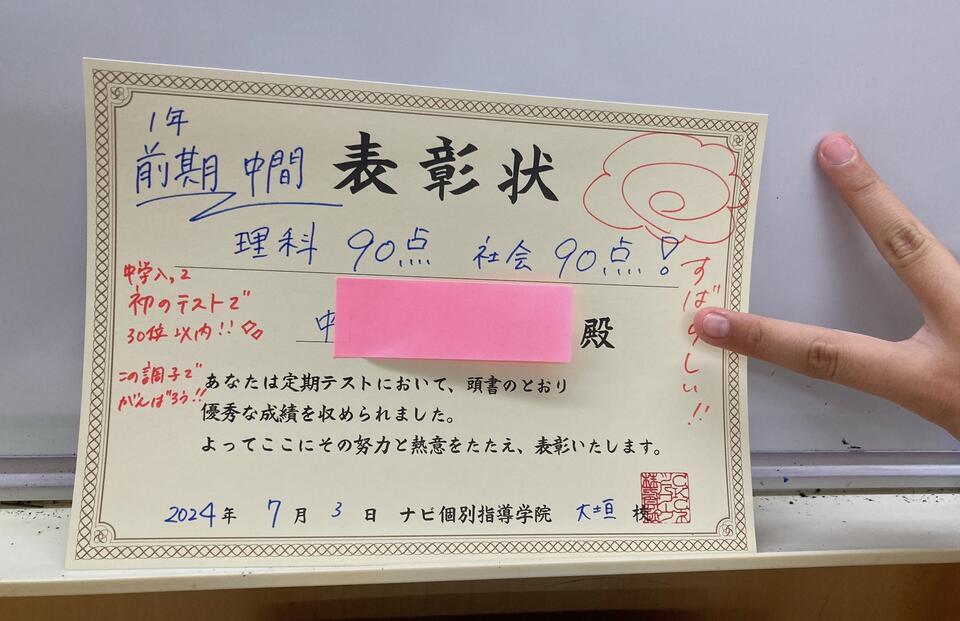 1年
前期 中間
表彰状
理科 90点 社会 90点!
中学入って
初のテストで
30位以内!!
この調子で
がんばろう!!
すばらしい!!
中
殿
あなたは定期テストにおいて、頭書のとおり
優秀な成績を収められました。
よってここにその努力と熱意をたたえ、表彰いたします。
2024年 7月 3日 ナビ個別指導学院 大垣 校